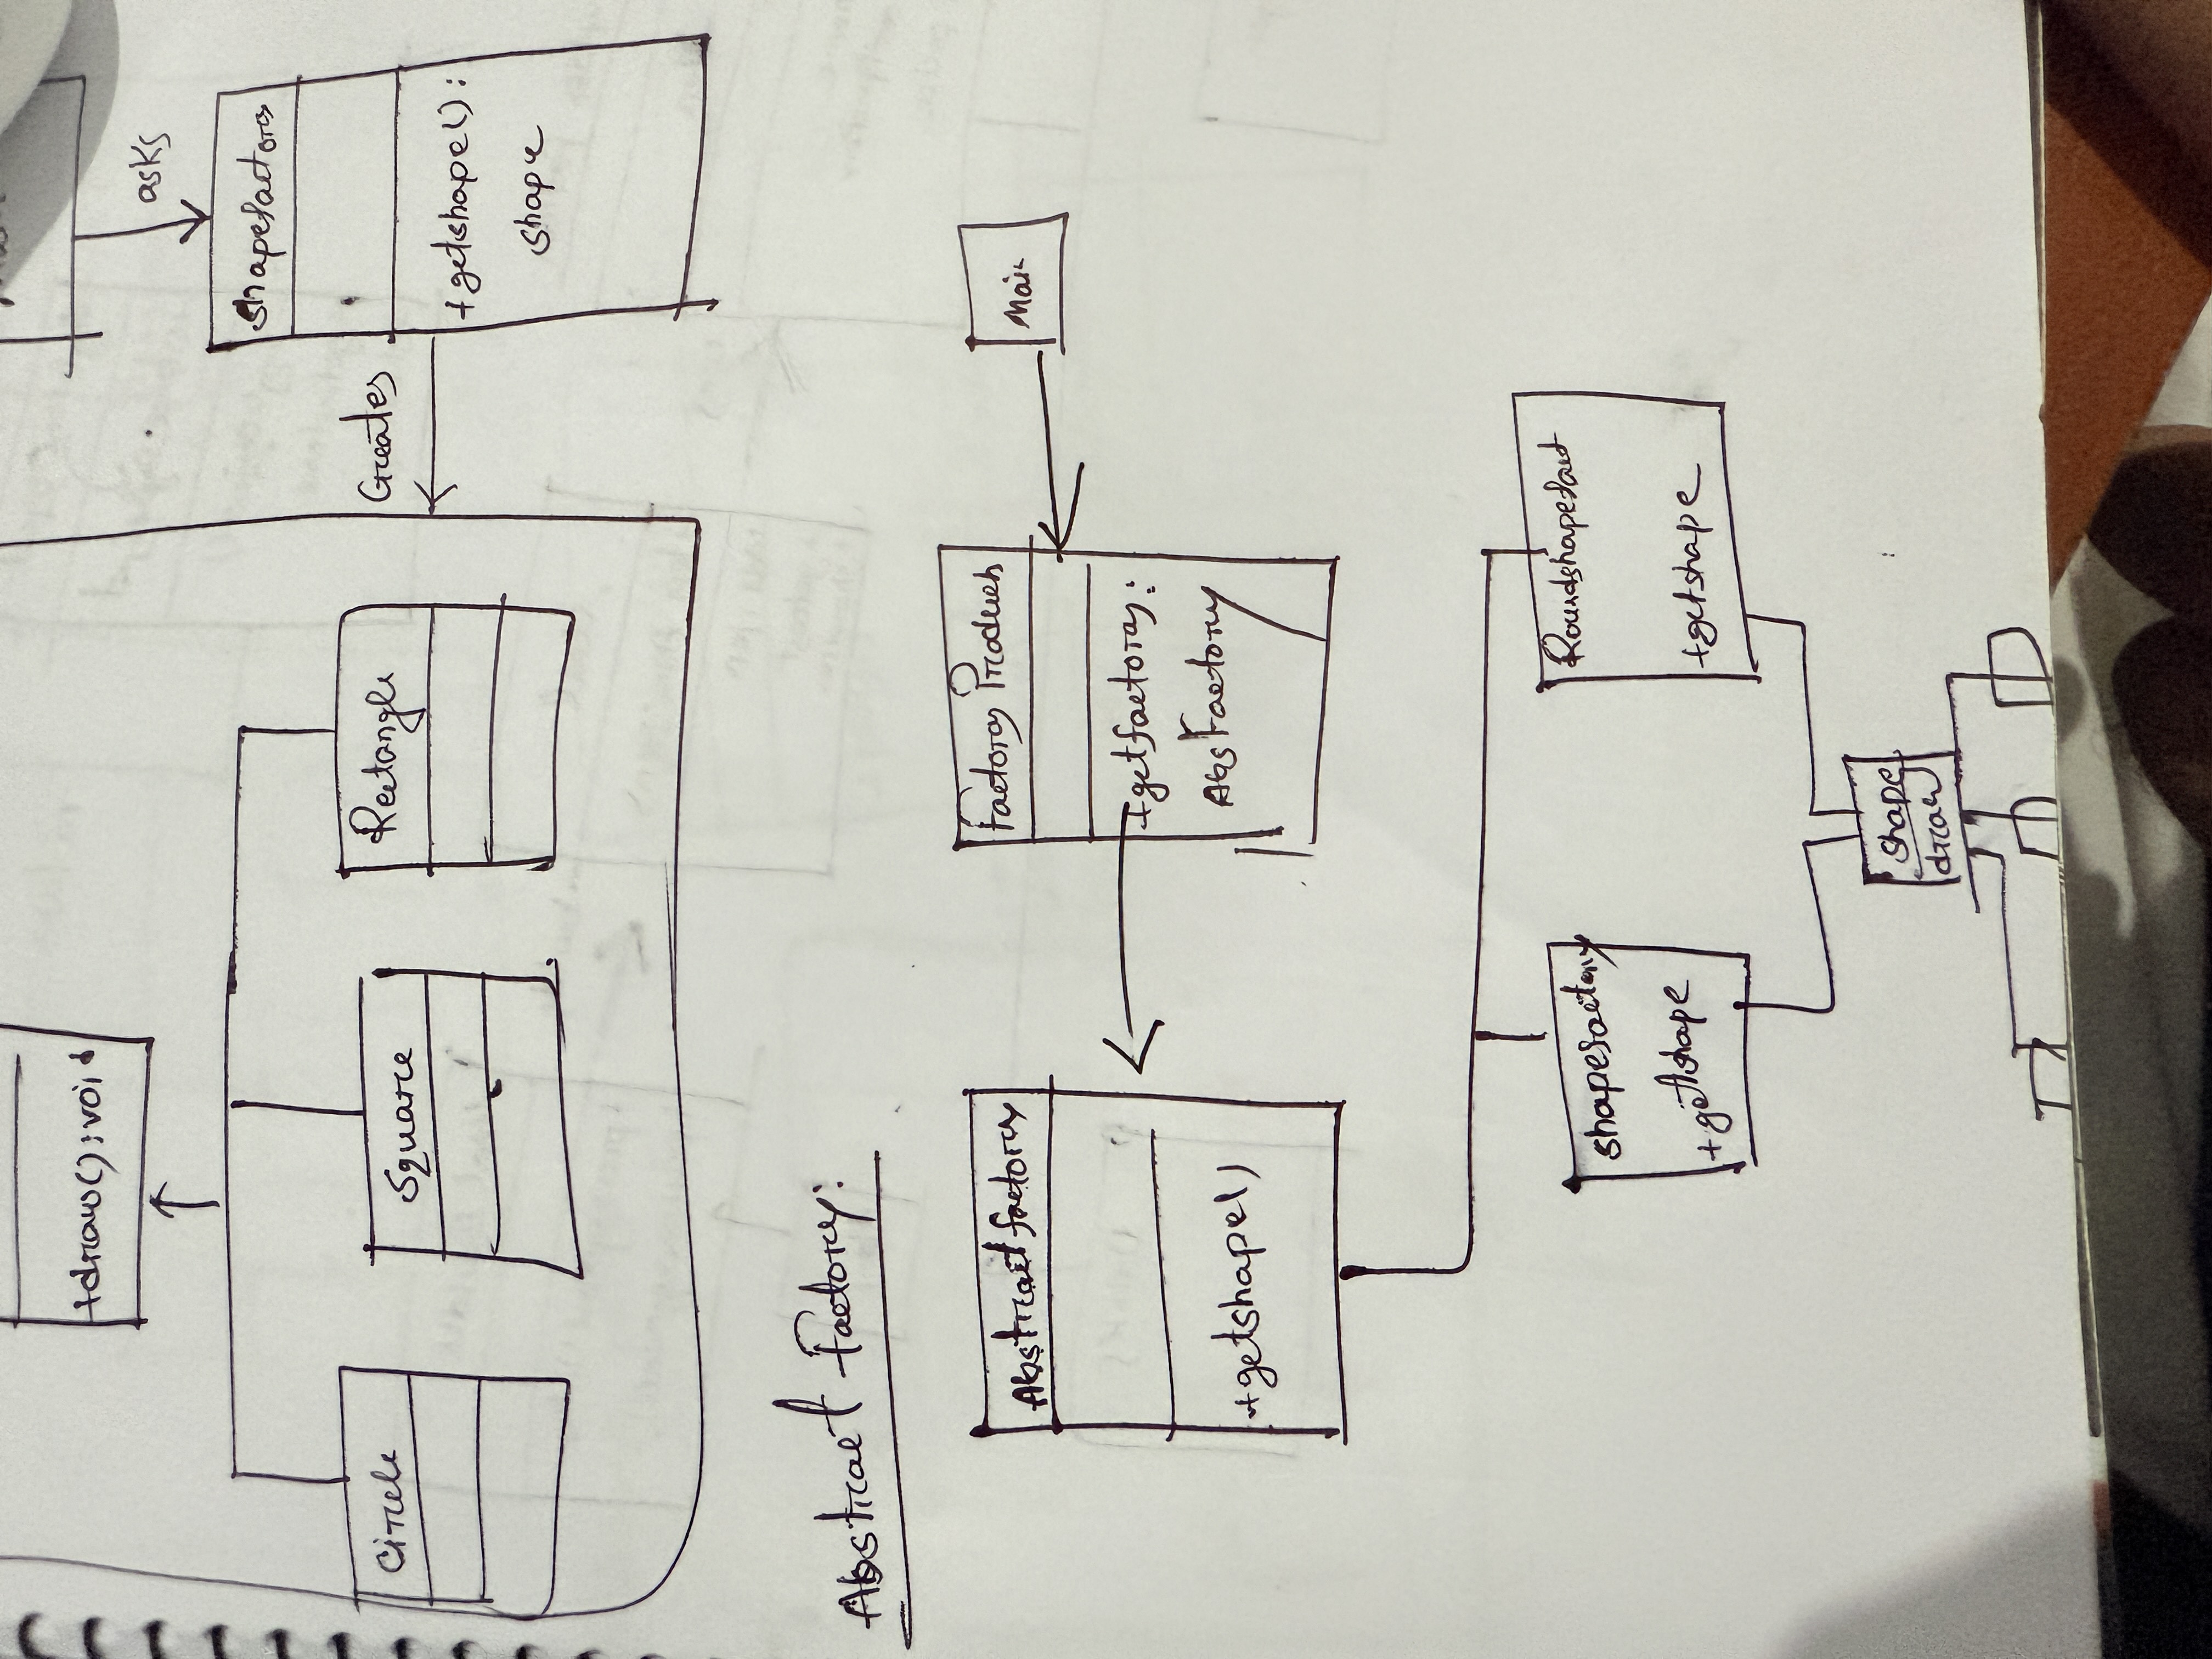 +draw():void
asks
Shapefactory
Circle
Square
Rectangle
Creates
+getshape():
shape
Abstract Factory:
Abstractfactory
Factory Producer
Main
+getfactory:
AbsFactory
+getshape()
shapefactory
Roundshapefact
+getshape
+getshape
shape
draw